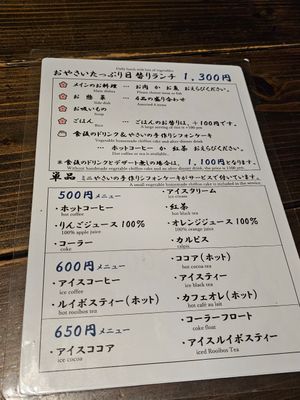 Daily lunch with lots of vegetables
おやさいたっぷり日替りランチ 1,300円
メインのお料理 ・・・ お肉 か お魚 おえらびください。
Main dishes Please choose meat or fish
お惣菜 ・・・ 4品の盛り合わせ
Side dish Assorted 4 items
お吸いもの
Soup
ごはん ・・・ ごはんのお替りは、+100円です。
Rice A large serving of rice is +100 yen
食後のドリンク&やさいの手作りシフォンケーキ
Vegetable homemade chiffon cake and after dinner drink
・・・ ホットコーヒー か 紅茶 おえらびください。
Hot coffee or tea is available.
※食後のドリンクとデザート無しの場合は、1,100円となります。
Without handmade vegetable chiffon cake and after dinner drink, the price is 1100yen
単品 ミニやさいの手作りシフォンケーキがサービスで付いています。
A small vegetable homemade chiffon cake is included in the service.
500円 メニュー
・アイスクリーム
ice cream
・ホットコーヒー
hot coffee
・紅茶
hot black tea
・りんごジュース 100%
100% apple juice
・オレンジジュース 100%
100% orange juice
・コーラー
coke
・カルピス
calpis
600円 メニュー
・ココア(ホット)
hot cocoa tea
・アイスコーヒー
ice coffee
・アイスティー
ice black tea
・ルイボスティー(ホット)
hot rooibos tea
・カフェオレ(ホット)
hot café au lait
650円 メニュー
・コーラーフロート
coke float
・アイスココア
ice cocoa
・アイスルイボスティー
iced Rooibos Tea